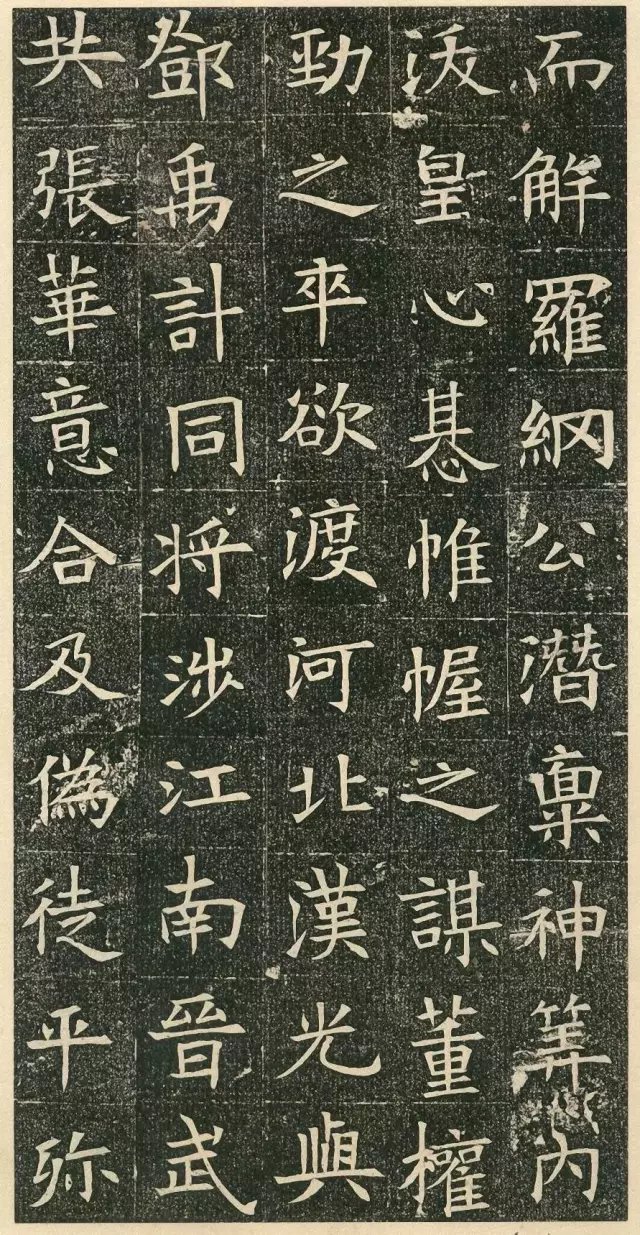 而解羅網公潛稟神筭內
沃皇心惎帷幄之謀董權
勁之卒欲渡河北漢光與
鄧禹計同將涉江南晉武
共張華意合及偽徒平殄